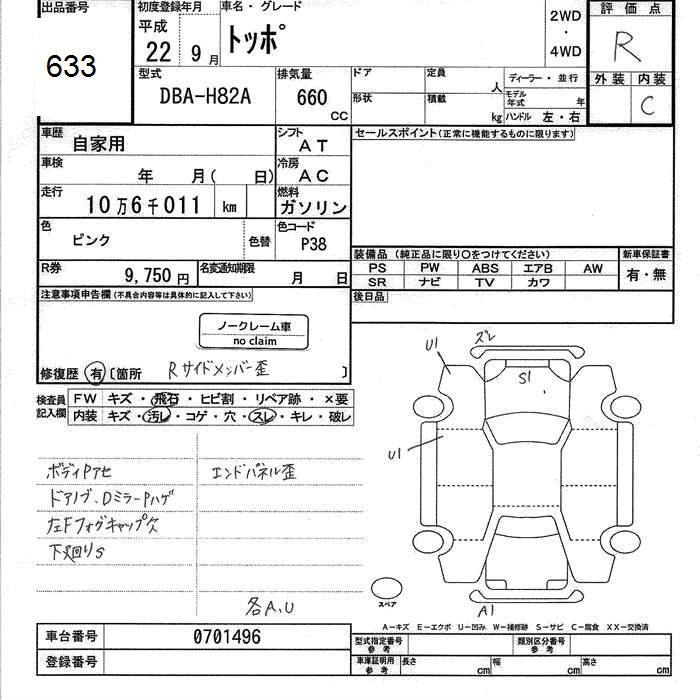 出品番号 初度登録年月 車名・グレード 評価点
633 平成 22 9月 トッポ 2WD・4WD R
型式 排気量 ドア 定員 人 ディーラー・並行 外装 内装
DBA-H82A 660 CC 形状 積載 kg モデル年式 年 C
ハンドル 左・右
車歴 自家用 シフト AT セールスポイント(正常に機能するものに限ります)
車検 年 月( 日) 冷房 AC
走行 10万6千011 km 燃料 ガソリン
色 ピンク 色替 色コード P38
装備品(純正品に限り○をつけてください) 新車保証書
PS PW ABS エアB AW 有・無
SR ナビ TV カワ
R券 9,750円 名変通知期限 月 日
後日品
注意事項申告欄(不具合内容等は具体的に記入して下さい)
ノークレーム車
no claim
修復歴 有 〔箇所 Rサイドメンバー歪 〕
検査員記入欄 FW キズ・飛石・ヒビ割・リペア跡・×要
内装 キズ・汚レ・コゲ・穴・スレ・キレ・破レ
U1 ズレ
S1
U1
ボディPアセ エンドパネル歪
ドアノブ、DミラーPハゲ
左Fフォグキャップ欠
下廻りS
スペア
各A,U A1
A−キズ E−エクボ U−凹み W−補修跡 S−サビ C−腐食 XX−交換済
車台番号 0701496 型式指定番号 参考 類別区分番号 参考
登録番号 車庫証明用 参考 長さ cm 幅 cm 高さ cm